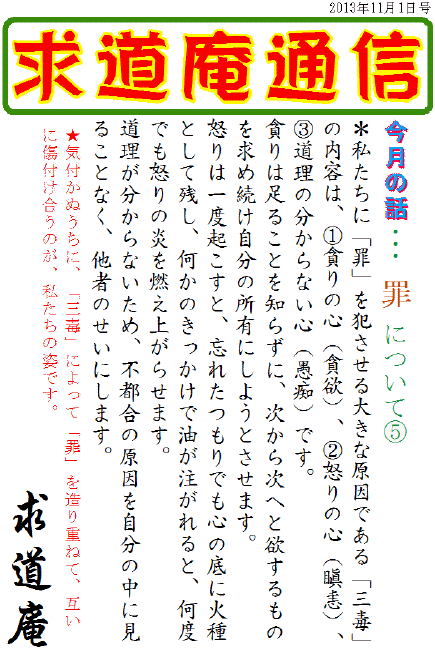 2013年11月1日号
求道庵通信
今月の話… 罪 について⑤
＊私たちに「罪」を犯させる大きな原因である「三毒」
の内容は、①貪りの心（貪欲）、②怒りの心（瞋恚）、
③道理の分からない心（愚痴）です。
貪りは足ることを知らずに、次から次へと欲するもの
を求め続け自分の所有にしようとさせます。
怒りは一度起こすと、忘れたつもりでも心の底に火種
として残し、何かのきっかけで油が注がれると、何度
でも怒りの炎を燃え上がらせます。
道理が分からないため、不都合の原因を自分の中に見
ることなく、他者のせいにします。
★気付かぬうちに、「三毒」によって「罪」を造り重ねて、互い
に傷付け合うのが、私たちの姿です。
求道庵